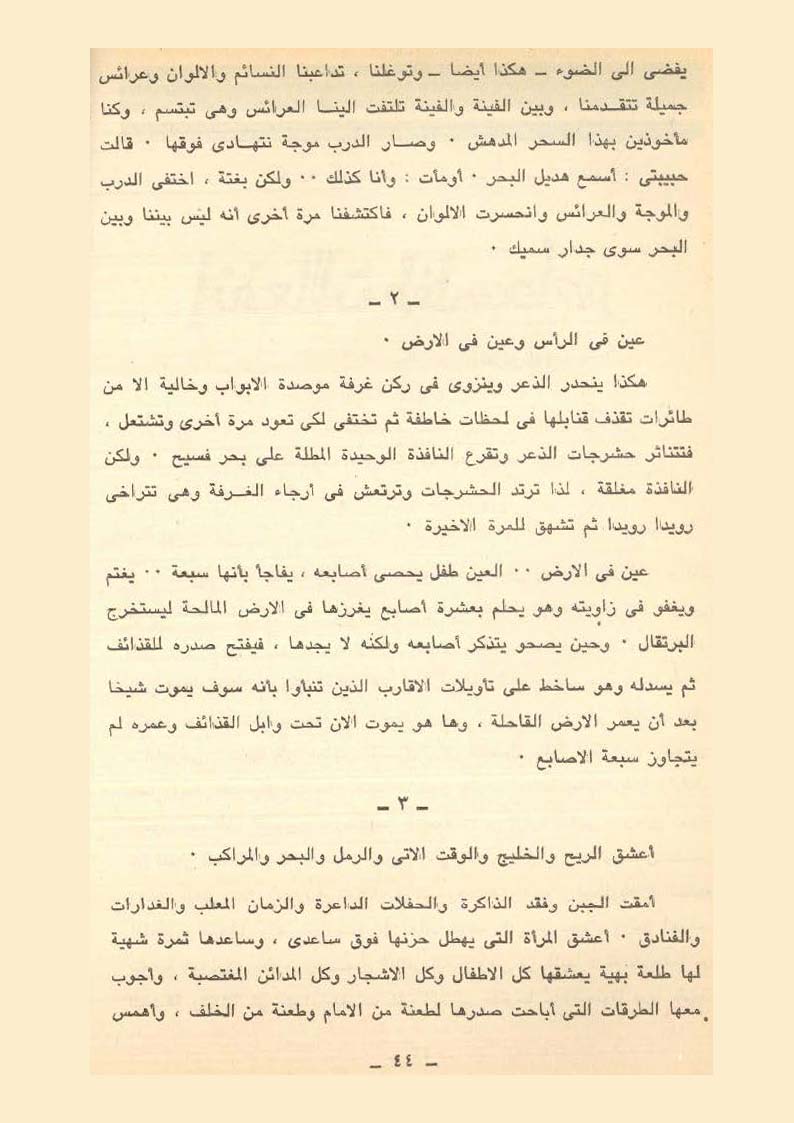 يفضى الى الضوء ــ هكذا أيضا ــ وتوغلنا ، تداعبنا النسائم والالوان وعرائس
جميلة تتقدمنا ، وبين الفينة والفينة تلتفت الينا العرائس وهى تبتسم ، وكنا
مأخوذين بهذا السحر المدهش ٠ وصار الدرب موجة نتهادى فوقها ٠ قالت
حبيبتى : أسمع هديل البحر ٠ أومأت : وأنا كذلك ٠٠ ولكن بغتة ، اختفى الدرب
والموجة والعرائس وانحسرت الالوان ، فاكتشفنا مرة أخرى أنه ليس بيننا وبين
البحر سوى جدار سميك ٠
ــ ٢ ــ
عين فى الرأس وعين فى الارض ٠
هكذا ينحدر الذعر وينزوى فى ركن غرفة موصدة الابواب وخالية الا من
طائرات تقذف قنابلها فى لحظات خاطفة ثم تختفى لكى تعود مرة أخرى وتشتعل ،
فتتناثر حشرجات الذعر وتقرع النافذة الوحيدة المطلة على بحر فسيح ٠ ولكن
النافذة مغلقة ، لذا ترتد الحشرجات وترتعش فى أرجاء الغرفة وهى تتراخى
رويدا رويدا ثم تشهق للمرة الاخيرة ٠
عين فى الارض ٠٠ العين طفل يحصى أصابعه ، يفاجأ بأنها سبعة ٠٠ يغتم
ويغفو فى زاويته وهو يحلم بعشرة أصابع يغرزها فى الارض المالحة ليستخرج
البرتقال ٠ وحين يصحو يتذكر أصابعه ولكنه لا يجدها ، فيفتح صدره للقذائف
ثم يسدله وهو ساخط على تأويلات الاقارب الذين تنبأوا بأنه سوف يموت شيخا
بعد أن يعمر الارض القاحلة ، وها هو يموت الان تحت وابل القذائف وعمره لم
يتجاوز سبعة الاصابع ٠
ــ ٣ ــ
أعشق الريح والخليج والوقت الاتى والرمل والبحر والمراكب ٠
أمقت الجبن وفقد الذاكرة والحفلات الداعرة والزمان المعلب والغدارات
والفنادق ٠ أعشق المرأة التى يهطل حزنها فوق ساعدى ، وساعدها ثمرة شهية
لها طلعة بهية يعشقها كل الاطفال وكل الاشجار وكل المدائن المغتصبة ، وأجوب
معها الطرقات التى أباحت صدرها لطعنة من الامام وطعنة من الخلف ، وأهمس
ــ ٤٤ ــ